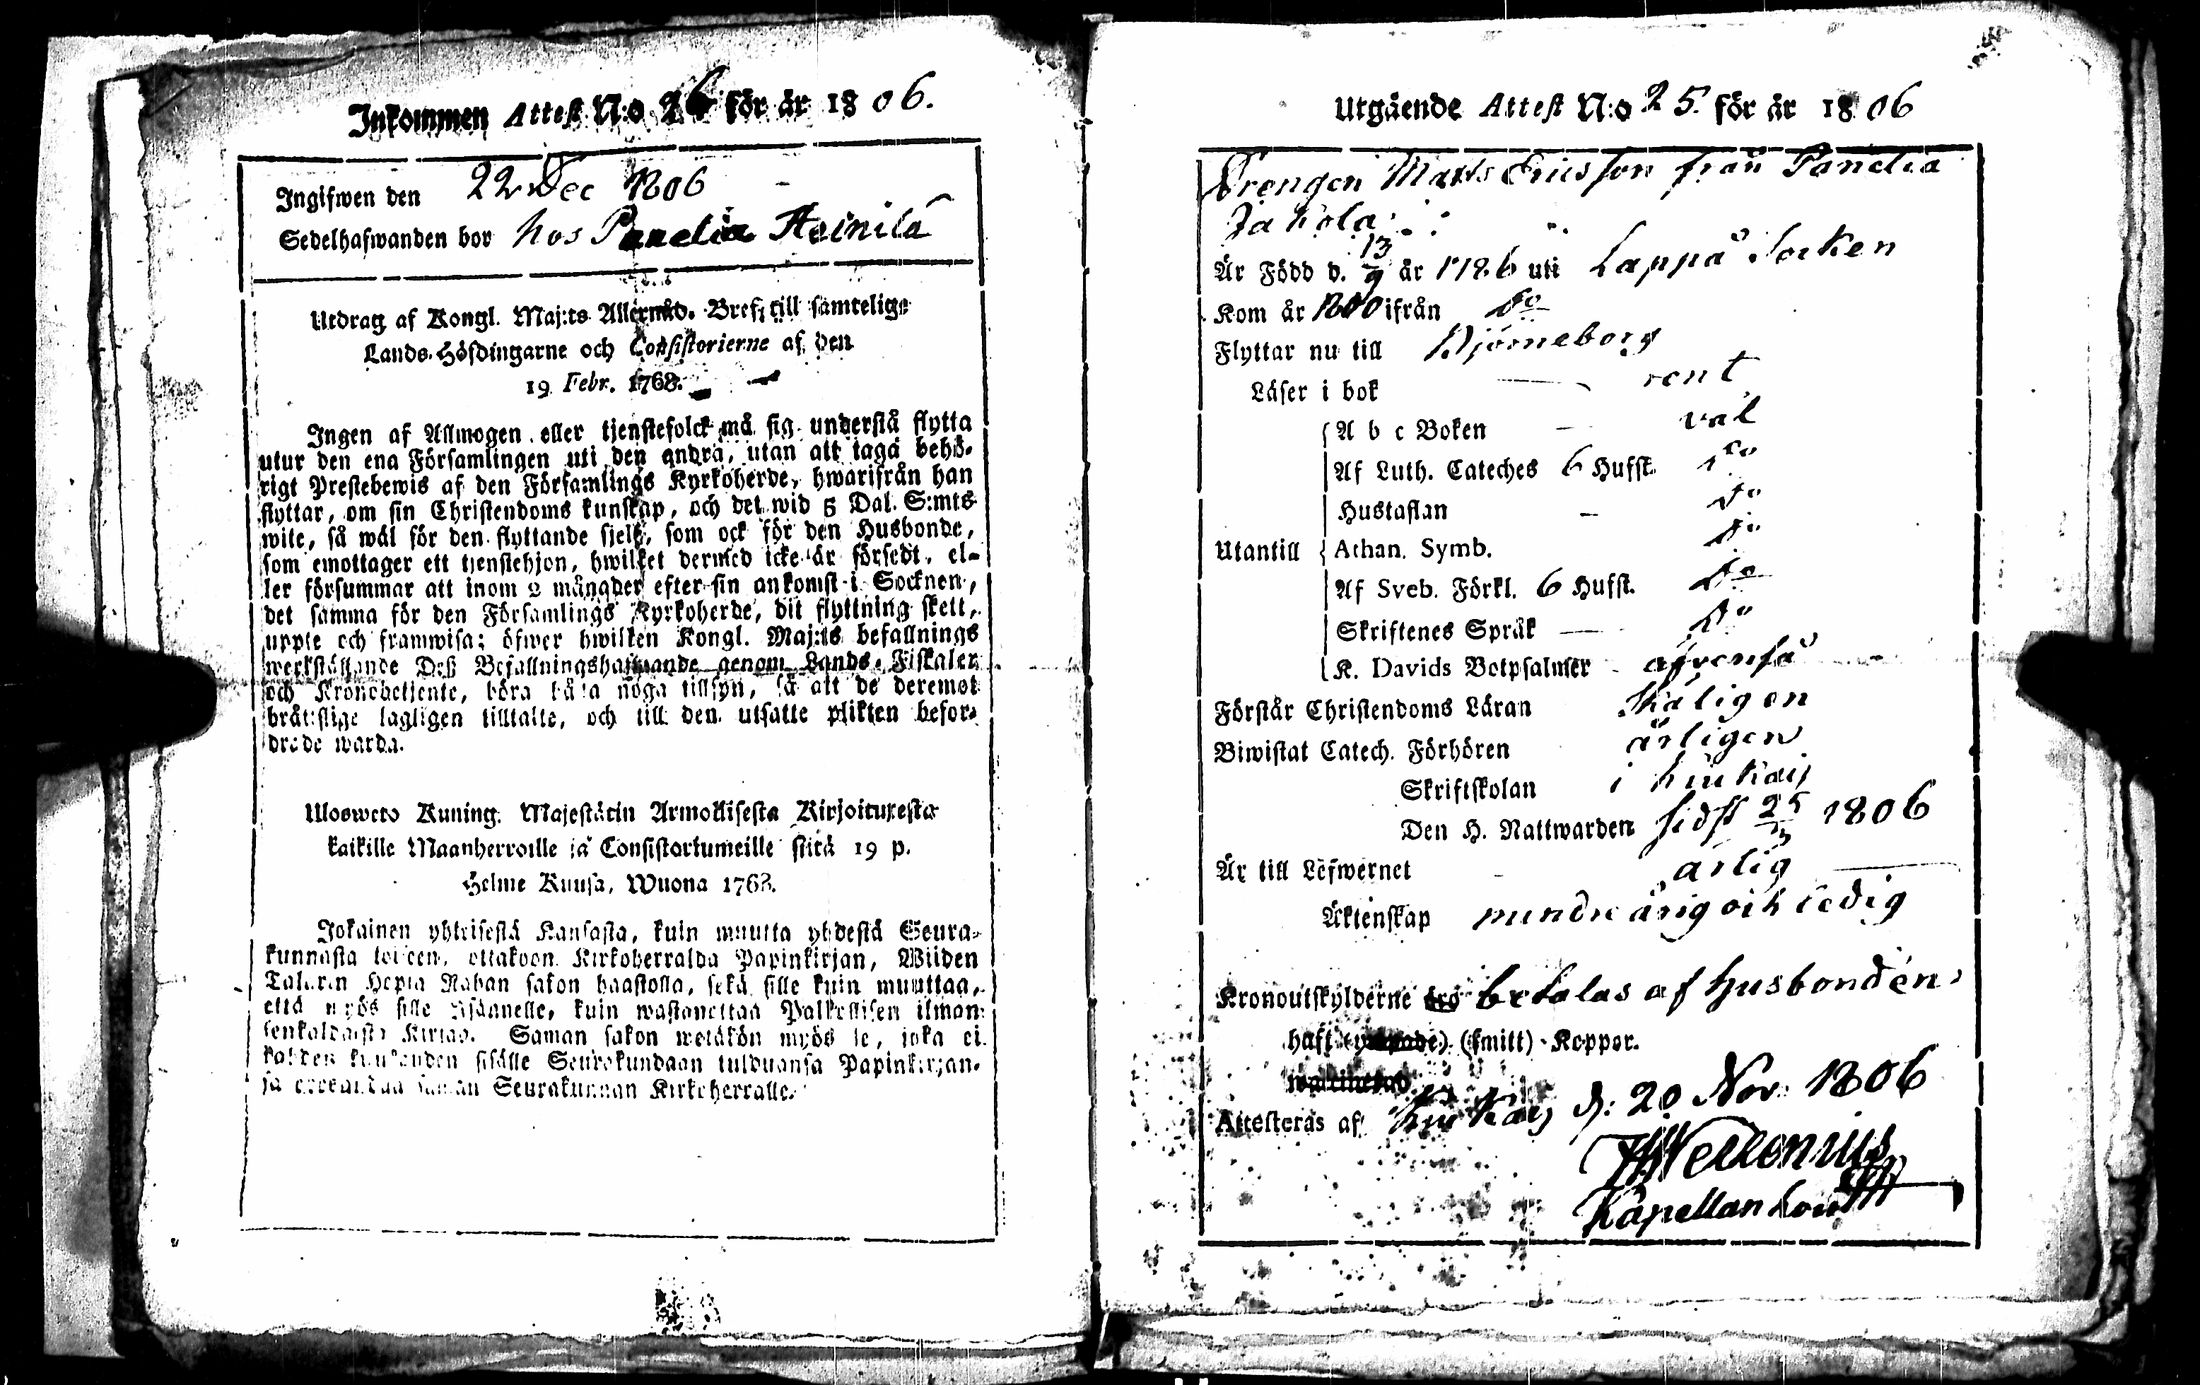 Inkommen Attest N:o 26 för år 1806.
Ingifwen den 22 Dec 1806
Sedelhafwanden bor hos Panelia Heinilä
Utdrag af Kongl. Maj:ts Allernåd. Bref, till samtelige
Lands-Höfdingarne och Consistorierne af den
19 Febr. 1768.
Ingen af Allmogen eller tjenstefolck må sig understå flytta
utur den ena Församlingen uti den andra, utan att taga behö-
rigt Prestebewis af den Församlings Kyrkoherde, hwarifrån han
flyttar, om sin Christendoms kunskap, och det wid 5 Dal. S:mts
wite, så wäl för den flyttande sjelf, som ock för den Husbonde,
som emottager ett tjenstehjon, hwilket dermed icke är försedt, el-
ler försummar att inom 2 månader efter sin ankomst i Socknen,
det samma för den Församlings Kyrkoherde, dit flyttning skett,
uppte och framwisa; öfwer hwilken Kongl. Maj:ts befallnings
werkställande Deß Befallningshafwande genom Lands-Fiskaler
och Kronobetjente, böra båra noga tillsyn, så att de deremot
brätslige lagligen tilltalte, och till den utsatte plikten befor-
drade warda.
Ulosweto Kuning. Majestätin Armollisesta Kirjoituxesta
kaikille Maanherroille ja Consistoriumeille siitä 19 p.
Helme Kuusa, Wuona 1768.
Jokainen yhteisestä Kansasta, kuin muutta yhdestä Seura-
kunnasta toiseen, ottakoon Kirkoherralda Papinkirjan, Wiiden
Talarin Hopia Rahan sakon haastolla, sekä sille kuin muuttaa,
että myös sille Isännelle, kuin wastanottaa Palkollisen ilman
senkaldaista Kirjaa. Saman sakon wetäkön myös se, joka ei
kahden kuukauden sisälle Seurakundaan tulduansa Papinkirjan-
sa edeskannaa saman Seurakunnan Kirkoherralle.
Utgående Attest N:o 25. för år 1806
Drengen Matts Ericsson från Panelia
Jakola
Är Född d. 13/9 år 1786 uti Lappå Socken
Kom år 1800 ifrån do
Flyttar nu till Björneborg
Läser i bok rent
A b c Boken väl
Af Luth. Cateches 6 Hufst. do
Hustaflan do
Utantill Athan. Symb. do
Af Sveb. Förkl. 6 Hufst. do
Skriftenes Språk do
K. Davids Botpsalmer äfvenså
Förstår Christendoms Läran skäligen
Biwistat Catech. Förhören årligen
Skriftskolan i Kiukais
Den H. Nattwarden sidst 25 1806
Är till Lefwernet ärlig
Äktenskap mindreårig och ledig
Kronoutskylderne betalas af husbonden
haft (smitt) Koppor.
Attesteras af Kiukais d: 20 Nov 1806
Wellenius
Kapellan